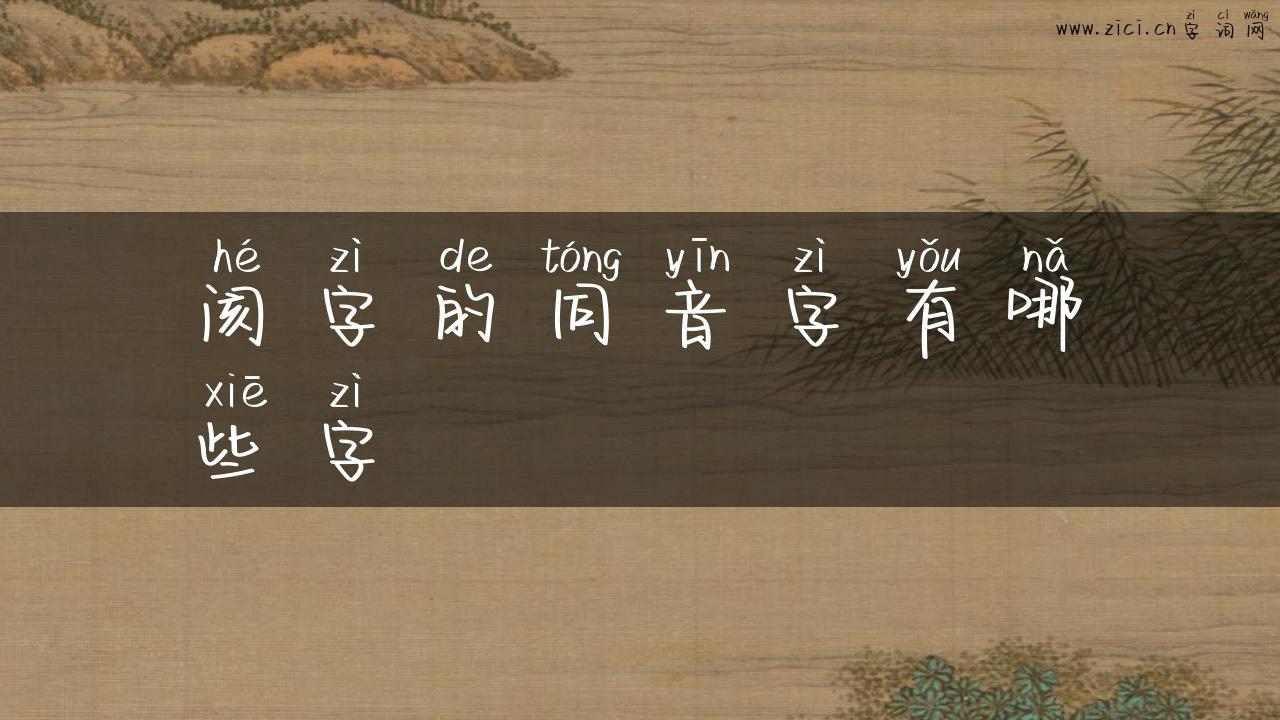 zì cí wǎng
www.zici.cn 字 词 网
hé zì de tóng yīn zì yǒu nǎ
阂 字 的 同 音 字 有 哪
xiē zì
些 字